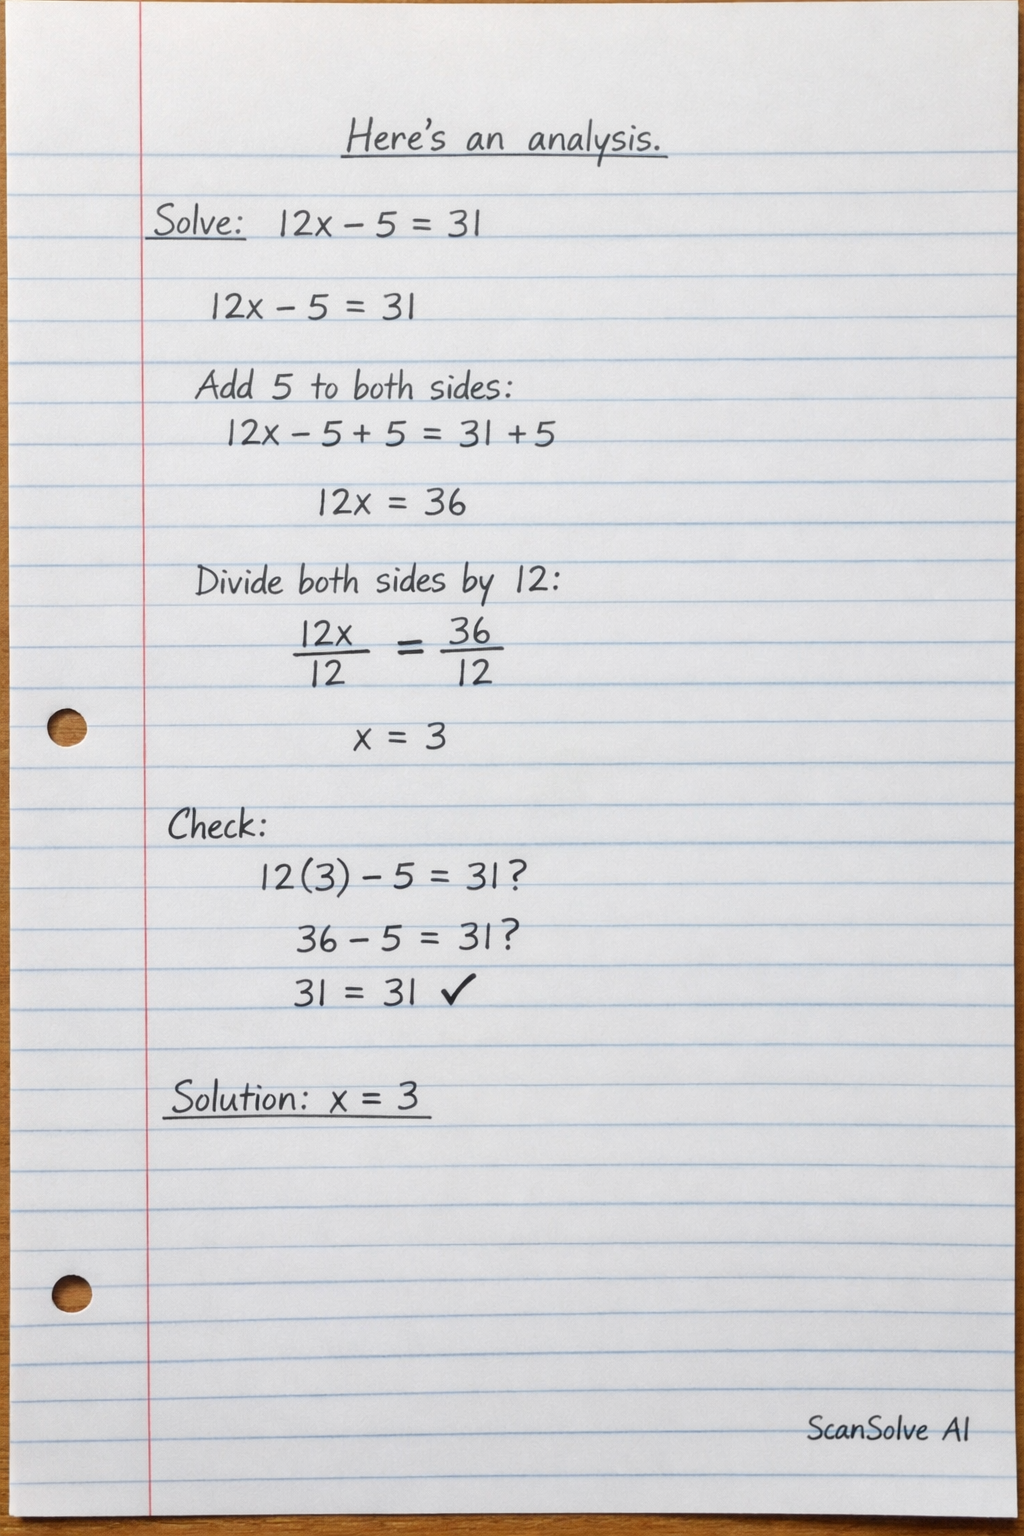 Here's an analysis.
Solve: 12x − 5 = 31
12x − 5 = 31
Add 5 to both sides:
12x − 5 + 5 = 31 + 5
12x = 36
Divide both sides by 12:
12x/12 = 36/12
x = 3
Check:
12(3) − 5 = 31?
36 − 5 = 31?
31 = 31 ✓
Solution: x = 3
ScanSolve AI